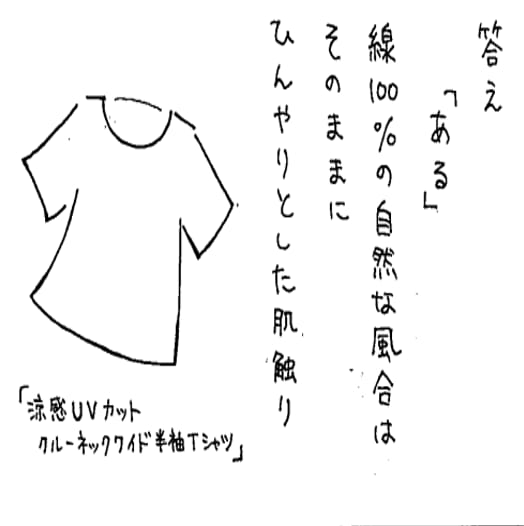 答え
「ある」
線100%の自然な風合は
そのままに
ひんやりとした肌触り
「涼感UVカット
クルーネックワイド半袖Tシャツ」